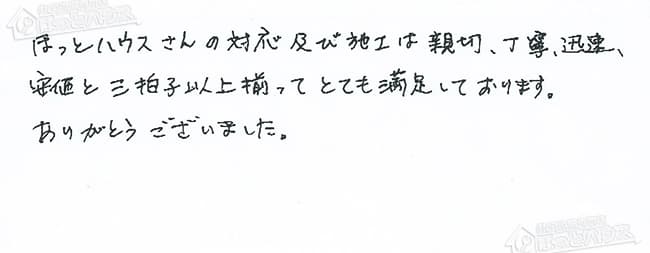 ほっとハウスさんの対応及び施工は親切、丁寧、迅速、
安価と三拍子以上揃ってとても満足しております。
ありがとうございました。
ほっとハウス